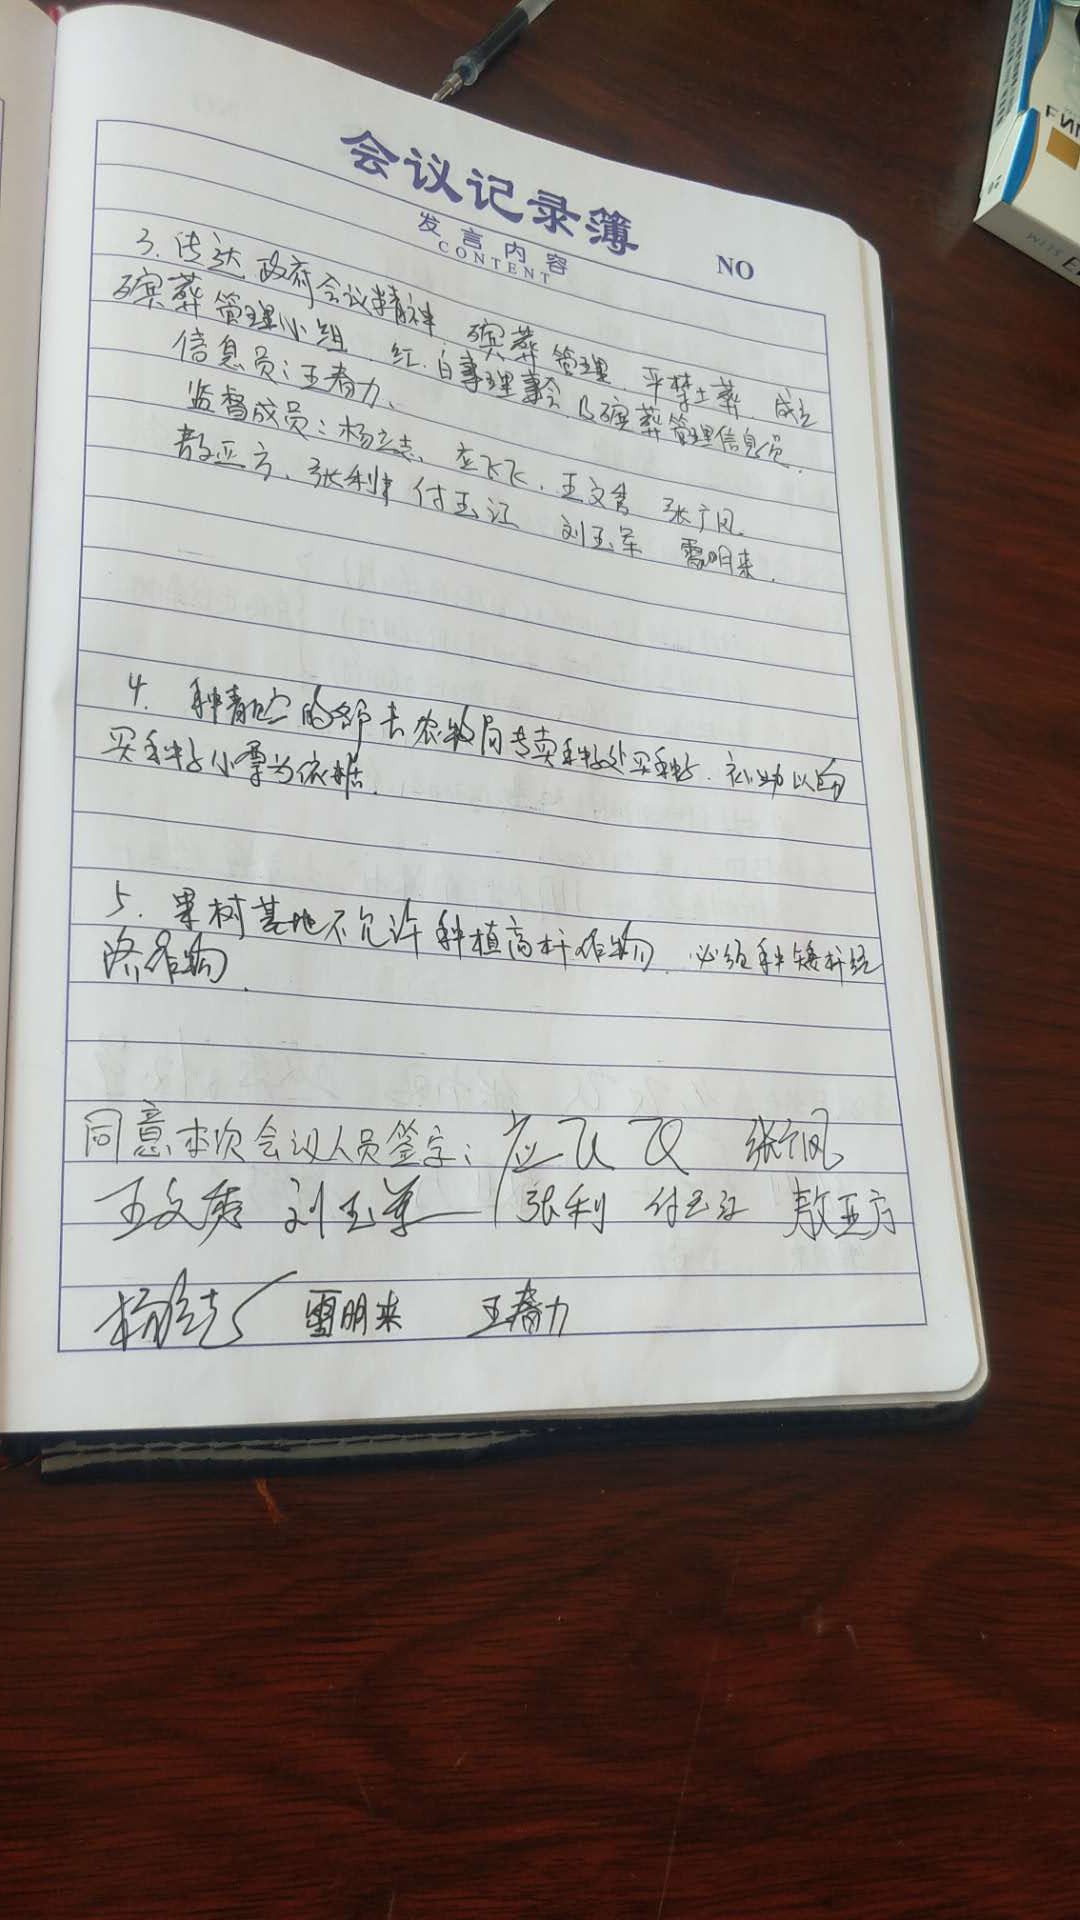 会议记录簿
发言内容
CONTENT
NO
3.传达政府会议精神.殡葬管理.严禁土葬.成立
殡葬管理小组.红.白事理事会.及殡葬管理信息员.
信息员:王春力、
监督成员:杨立志、应飞飞.王文 张广凤.
敖亚方、张利 付玉江 刘玉军 雷明来.
4. 种青贮的各户去农牧局专卖种籽处买种籽.补助以
买种籽小票为依据.
5. 果树基地不允许种植高杆作物.必须种矮杆经
济作物.
同意本次会议人员签字: 应飞飞 张广凤
王文 刘玉军 张利 付玉江 敖亚方
杨立志 雷明来 王春力